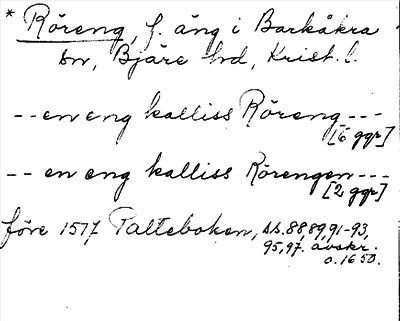 * Röreng, f. äng i Barkåkra
sn, Bjäre hd, Krist. l.
-- en eng kalliss Röreng ---
[6 ggr]
-- en eng kalliss Rörengen ---
[2 ggr]
före 1517 Palteboken, ss. 88, 89, 91-93,
95, 97. avskr.
o. 1650.